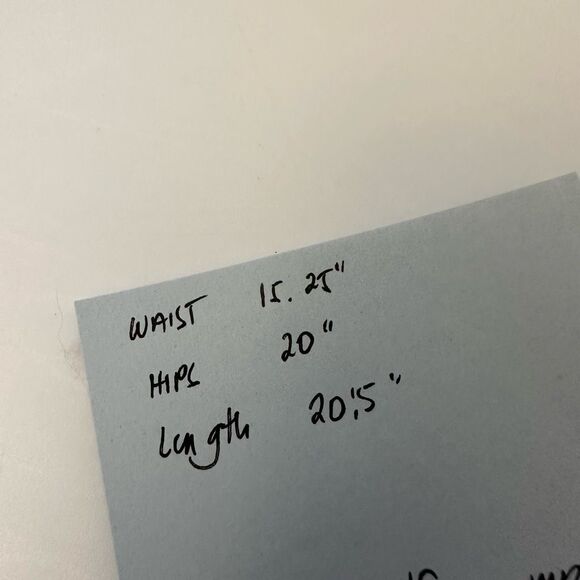 WAIST 15.25"
HIPS 20"
Length 20.5"